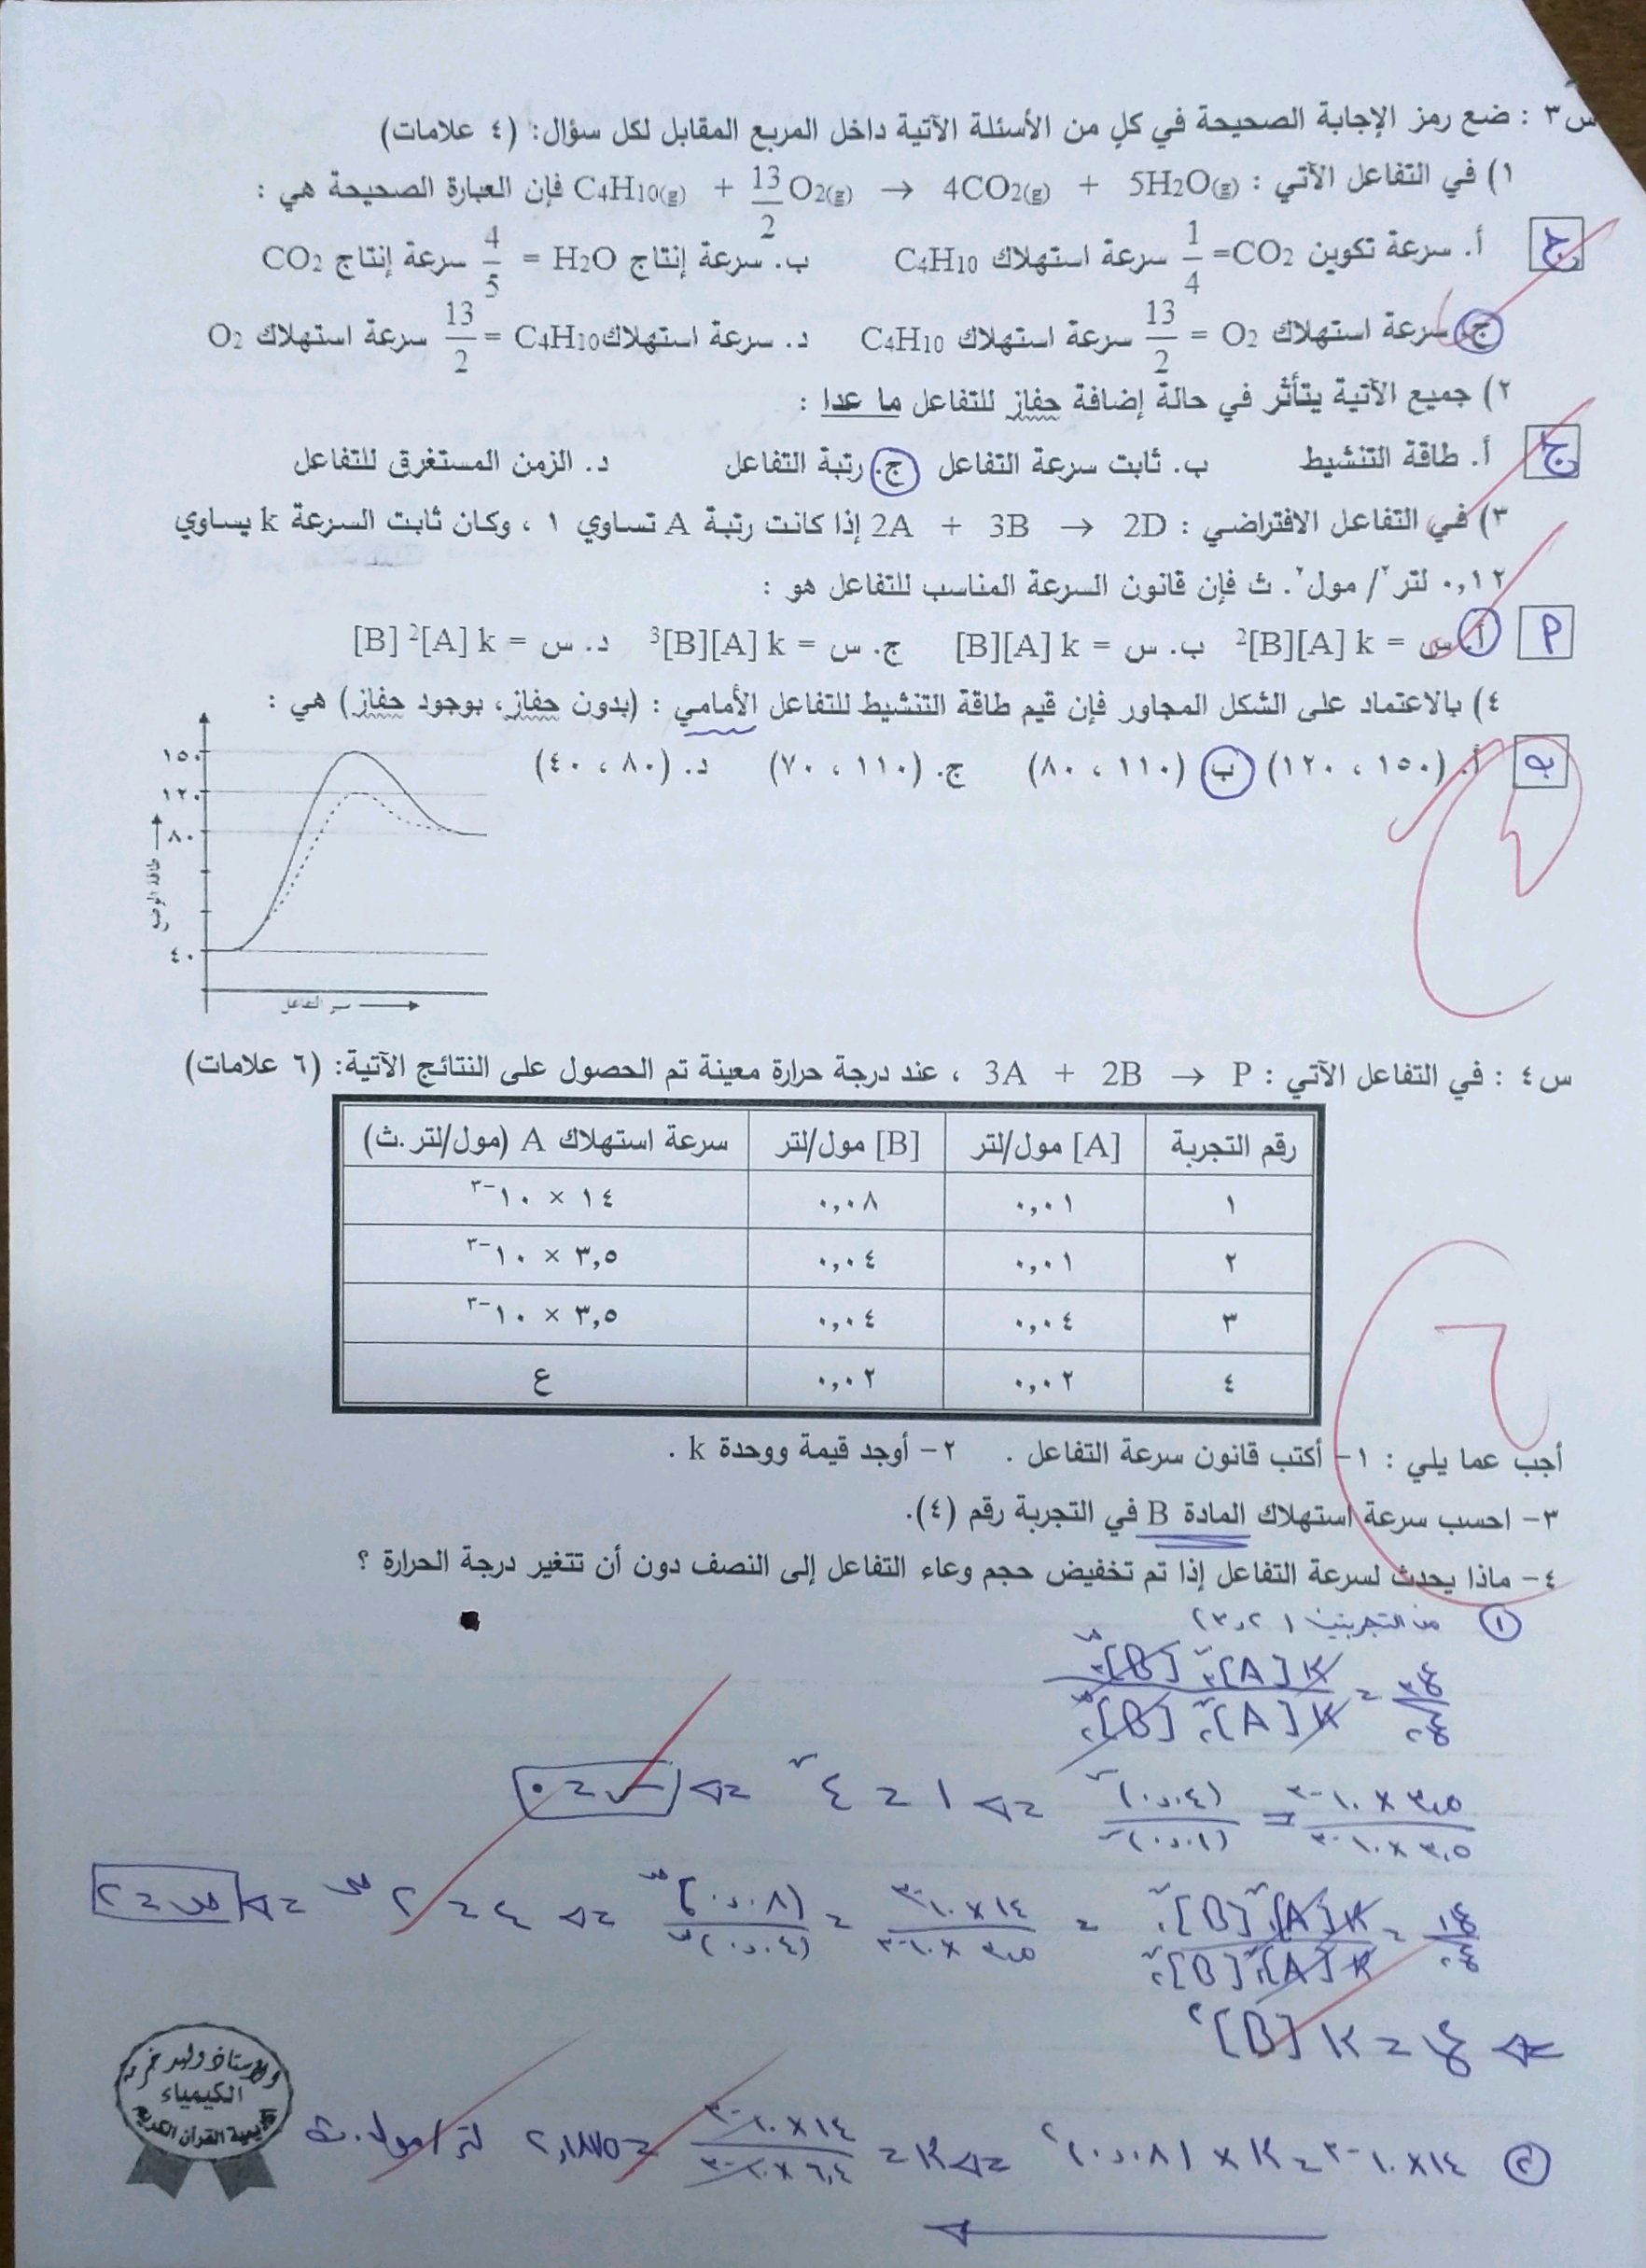 س٣ : ضع رمز الإجابة الصحيحة في كلٍ من الأسئلة الآتية داخل المربع المقابل لكل سؤال: (٤ علامات)
١) في التفاعل الآتي : C4H10(g) + 13/2 O2(g) → 4CO2(g) + 5H2O(g) فإن العبارة الصحيحة هي :
ج أ. سرعة تكوين CO2 = 1/4 سرعة استهلاك C4H10 ب. سرعة إنتاج H2O = 4/5 سرعة إنتاج CO2
ج. سرعة استهلاك O2 = 13/2 سرعة استهلاك C4H10 د. سرعة استهلاك C4H10 = 13/2 سرعة استهلاك O2
٢) جميع الآتية يتأثر في حالة إضافة حفاز للتفاعل ما عدا :
ج أ. طاقة التنشيط ب. ثابت سرعة التفاعل ج. رتبة التفاعل د. الزمن المستغرق للتفاعل
٣) في التفاعل الافتراضي : 2A + 3B → 2D إذا كانت رتبة A تساوي ١ ، وكان ثابت السرعة k يساوي
٠,١٢ لتر٢/ مول٢. ث فإن قانون السرعة المناسب للتفاعل هو :
أ أ. س = k [A][B]2 ب. س = k [A][B] ج. س = k [A][B]3 د. س = k [A]2 [B]
٤) بالاعتماد على الشكل المجاور فإن قيم طاقة التنشيط للتفاعل الأمامي : (بدون حفاز، بوجود حفاز) هي :
ب أ. (١٥٠ ، ١٢٠) ب. (١١٠ ، ٨٠) ج. (١١٠ ، ٧٠) د. (٨٠ ، ٤٠)
١٥٠
١٢٠
٨٠
٤٠
طاقة الوضع
سير التفاعل
س٤ : في التفاعل الآتي : 3A + 2B → P ، عند درجة حرارة معينة تم الحصول على النتائج الآتية: (٦ علامات)
رقم التجربة [A] مول/لتر [B] مول/لتر سرعة استهلاك A (مول/لتر.ث)
١ ٠,٠١ ٠,٠٨ ١٤ × ١٠-٣
٢ ٠,٠١ ٠,٠٤ ٣,٥ × ١٠-٣
٣ ٠,٠٤ ٠,٠٤ ٣,٥ × ١٠-٣
٤ ٠,٠٢ ٠,٠٢ ع
أجب عما يلي : ١- أكتب قانون سرعة التفاعل . ٢- أوجد قيمة ووحدة k .
٣- احسب سرعة استهلاك المادة B في التجربة رقم (٤).
٤- ماذا يحدث لسرعة التفاعل إذا تم تخفيض حجم وعاء التفاعل إلى النصف دون أن تتغير درجة الحرارة ؟
① من التجربتين (٢،٣)
ع٣/ع٢ = K [A]٣س [B]٣ص / K [A]٢س [B]٢ص
٣,٥ × ١٠-٣ / ٣,٥ × ١٠-٣ = (٠,٠٤)س / (٠,٠١)س ⇐ ١ = ٤س ⇐ س = ٠
ع١/ع٢ = K [A]١س [B]١ص / K [A]٢س [B]٢ص = ١٤ × ١٠-٣ / ٣,٥ × ١٠-٣ = (٠,٠٨)ص / (٠,٠٤)ص ⇐ ٤ = ٢ص ⇐ ص = ٢
⇐ ع = K [B]٢
② ١٤ × ١٠-٣ = K × (٠,٠٨)٢ ⇐ K = ١٤ × ١٠-٣ / ٦,٤ × ١٠-٣ = ٢,١٨٧٥ لتر/مول.ث
الأستاذ وليد
الكيمياء
القرآن الكريم